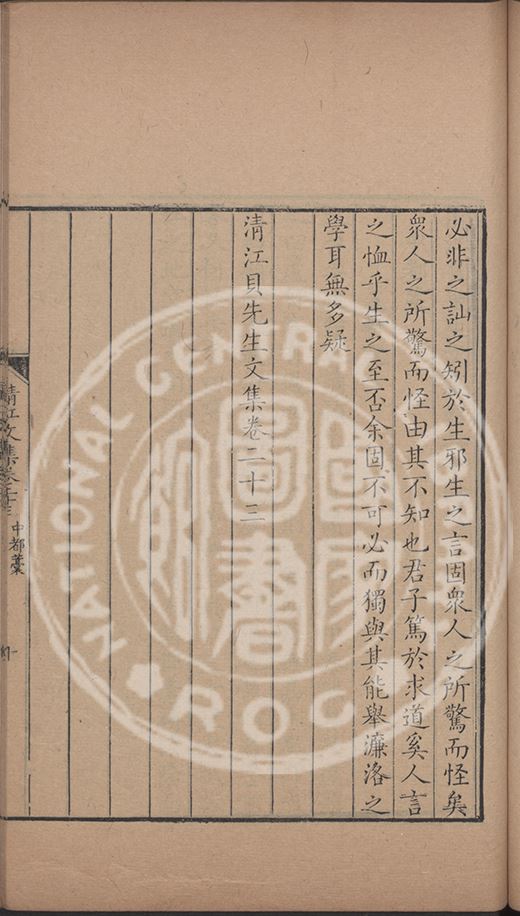 必非之訕之矧於生邪生之言固衆人之所驚而怪矣
衆人之所驚而怪由其不知也君子篤於求道奚人言
之恤乎生之至否余固不可必而獨與其能舉濂洛之
學耳無多疑
清江貝先生文集卷二十三
清江文集卷二十三
中都藁
NATIONAL CENTRAL
ROC